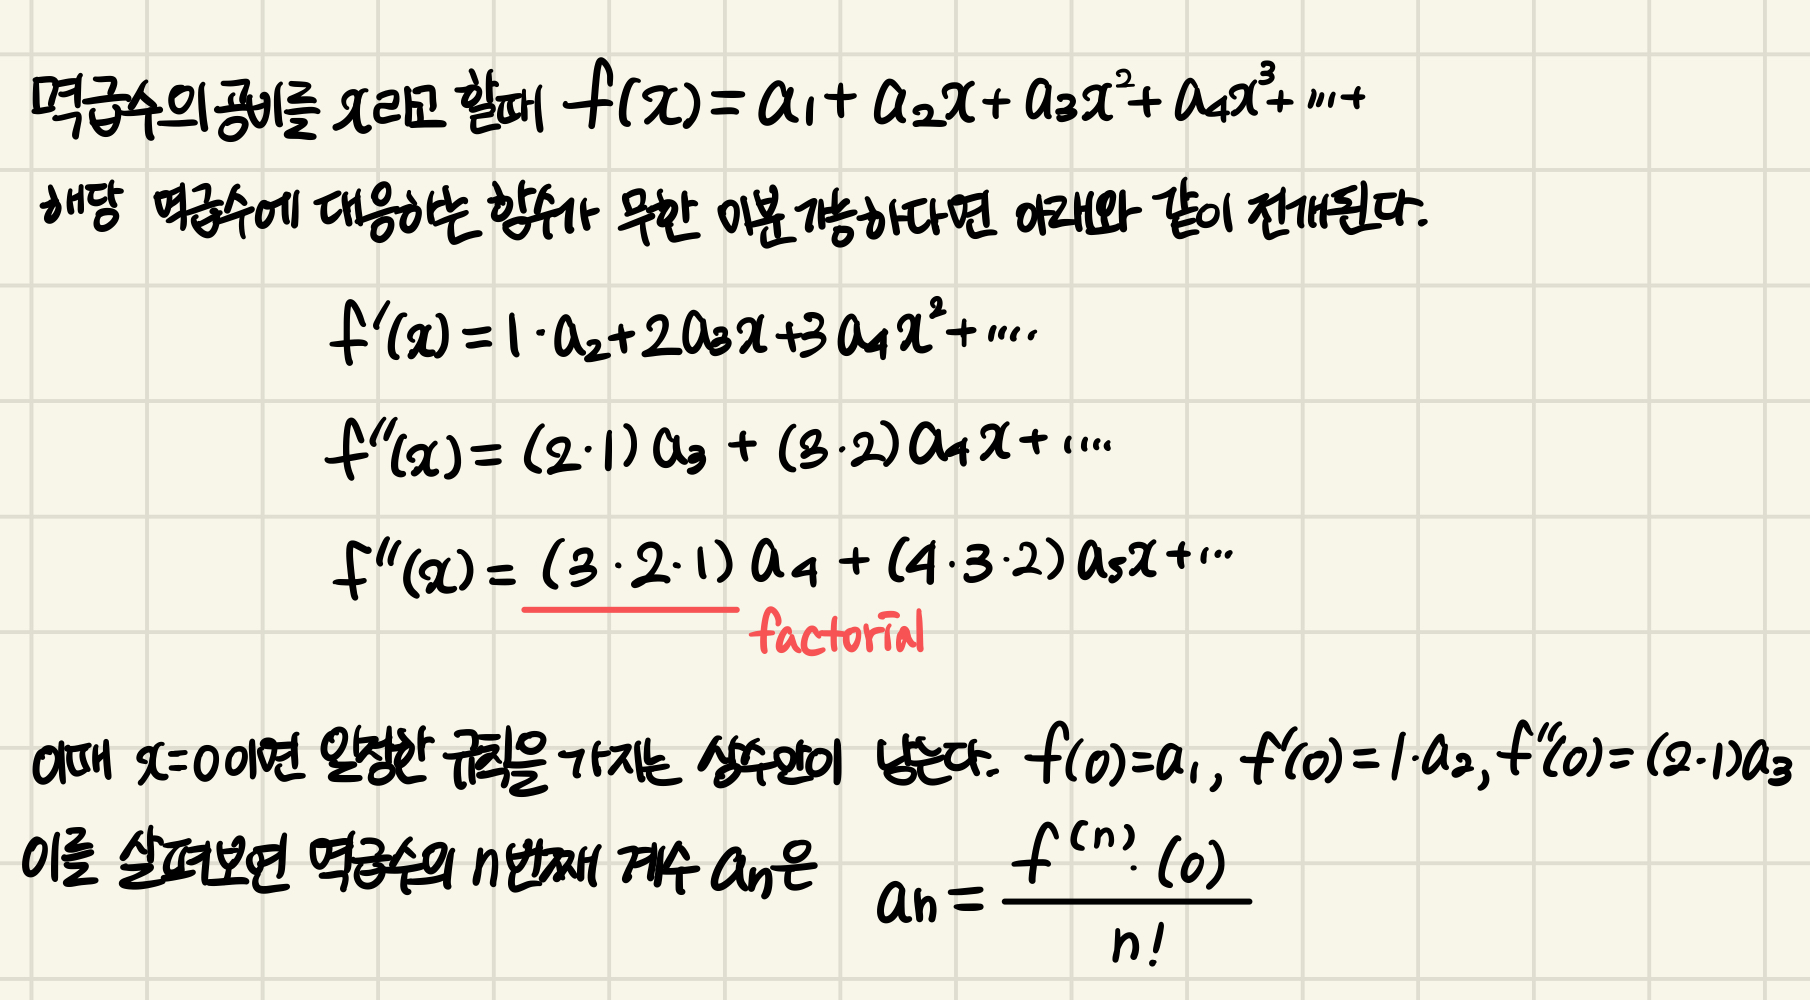 멱급수의 공비를 x라고 할때 f(x) = a₁ + a₂x + a₃x² + a₄x³ + ... +
해당 멱급수에 대응하는 함수가 무한 미분 가능하다면 아래와 같이 전개된다.
f'(x) = 1·a₂ + 2a₃x + 3a₄x² + ....
f''(x) = (2·1)a₃ + (3·2)a₄x + ....
f''(x) = (3·2·1)a₄ + (4·3·2)a₅x + ...
factorial
이때 x=0 이면 일정한 규칙을 가지는 상수만이 남는다. f(0)=a₁, f'(0)=1·a₂, f''(0)=(2·1)a₃
이를 살펴보면 멱급수의 n번째 계수 aₙ은 aₙ = f⁽ⁿ⁾·(0) / n!